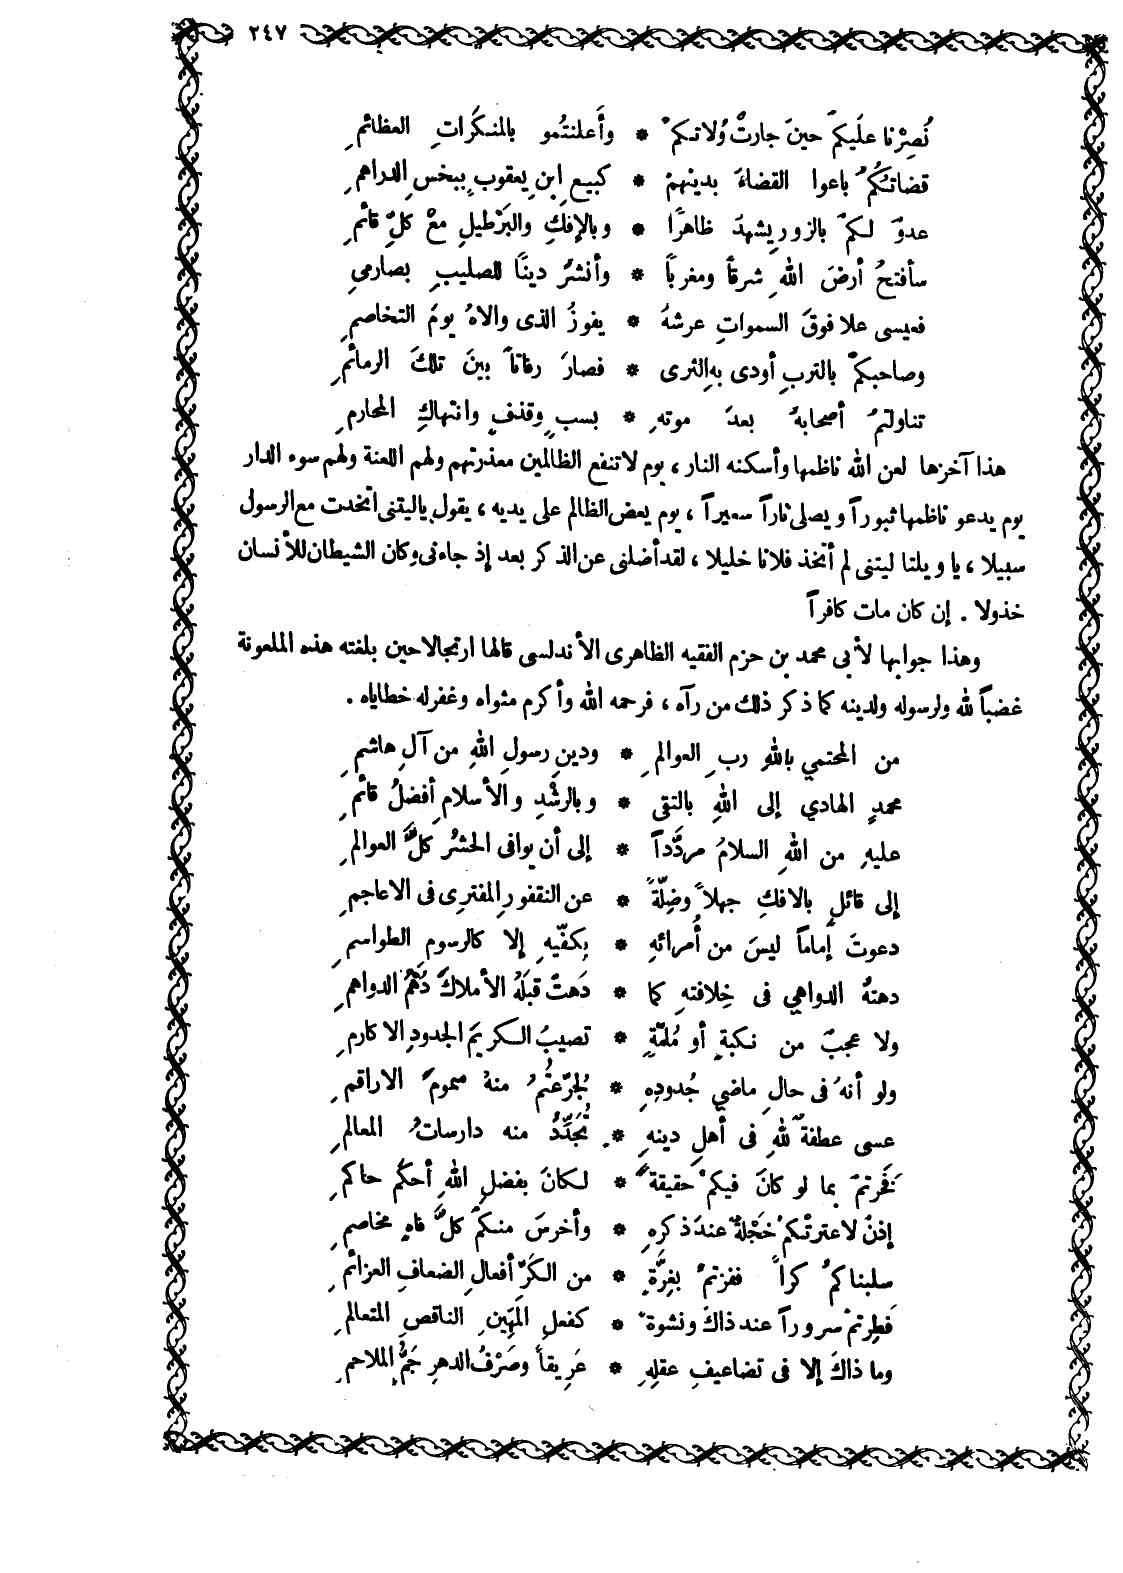 ٢٤٧
نُصِرْنا علَيكمْ حينَ جارتْ وُلاتكمْ * وأَعلنتُمو بالمنكَراتِ العظائمِ
قضاتكُمُ باعوا القضاءَ بدينهمْ * كبيعِ ابنِ يعقوبٍ ببخسِ الدراهمِ
عدوٌ لكمْ بالزورِ يشهدُ ظاهرًا * وبالإفكِ والبرْطيلِ معْ كلِّ قائمِ
سأفتحُ أرضَ اللهِ شرقاً ومغرباً * وأنشرُ دينًا للصليبِ بصارمي
فعيسى علا فوقَ السمواتِ عرشهُ * يفوزُ الذى والاهُ يومَ التخاصمِ
وصاحبكمْ بالتربِ أودى بهِ الثرى * فصارَ رفاتاً بينَ تلكَ الرمائمِ
تناولتمْ أصحابهُ بعدَ موتهِ * بسبٍ وقذفٍ وانتهاكِ المحارمِ
هذا آخرها لعن الله ناظمها وأسكنه النار ، يوم لا تنفع الظالمين معذرتهم ولهم اللعنة ولهم سوء الدار
يوم يدعو ناظمها ثبوراً ويصلى ناراً سعيراً ، يوم يعض الظالم على يديه ، يقول ياليتنى اتخذت مع الرسول
سبيلا ، يا ويلتا ليتنى لم أتخذ فلانا خليلا ، لقد أضلنى عن الذكر بعد إذ جاءنى وكان الشيطان للأنسان
خذولا . إن كان مات كافراً
وهذا جوابها لأبى محمد بن حزم الفقيه الظاهرى الأندلسى قالها ارتجالا حين بلغته هذه الملعونة
غضباً لله ولرسوله ولدينه كما ذكر ذلك من رآه ، فرحمه الله وأكرم مثواه وغفر له خطاياه .
من المحتمي باللهِ ربِ العوالمِ * ودينِ رسولِ اللهِ من آلِ هاشمِ
محمدٍ الهادي إلى اللهِ بالتقى * وبالرشْدِ والأسلامِ أفضلُ قائمِ
عليهِ من اللهِ السلامُ مردَّداً * إلى أن يوافى الحشرُ كلَّ العوالمِ
إلى قائلٍ بالافكِ جهلاً وضِلّةً * عن النقفورِ المفترى فى الاعاجمِ
دعوتَ إماماً ليسَ من أُمرائهِ * بكفّيهِ إلا كالرسومِ الطواسمِ
دهتهُ الدواهي فى خِلافتهِ كما * دَهتْ قبلَهُ الأملاكَ دُهْمُ الدواهمِ
ولا عجبٌ من نكبةٍ أو مُلمّةٍ * تصيبُ الكريمَ الجدودِ الاكارمِ
ولو أنهُ فى حالِ ماضي جُدودِهِ * لجُرّعتُمُ منهُ سمومَ الاراقمِ
عسى عطفةٌ للهِ فى أهلِ دينهِ * تُجَدِّدُ منه دارساتُ المعالمِ
فخَرتمْ بما لو كانَ فيكمْ حقيقةً * لكانَ بفضلِ اللهِ أحكمُ حاكمِ
إذنْ لاعترتْكمُ خَجْلةٌ عندَ ذكرهِ * وأخرسَ منكمْ كلَّ فاهٍ مخاصمِ
سلبناكمُ كراً ففزتمْ بغِرَّةٍ * من الكَرِّ أفعالِ الضعافِ العزائمِ
فَطِرتمْ سروراً عند ذاكَ ونشوةً * كفعلِ المَهِينِ الناقصِ المتعالمِ
وما ذاكَ إلا فى تضاعيفِ عقلِهِ * عَريقاً وصَرْفُ الدهرِ جَمُّ الملاحمِ